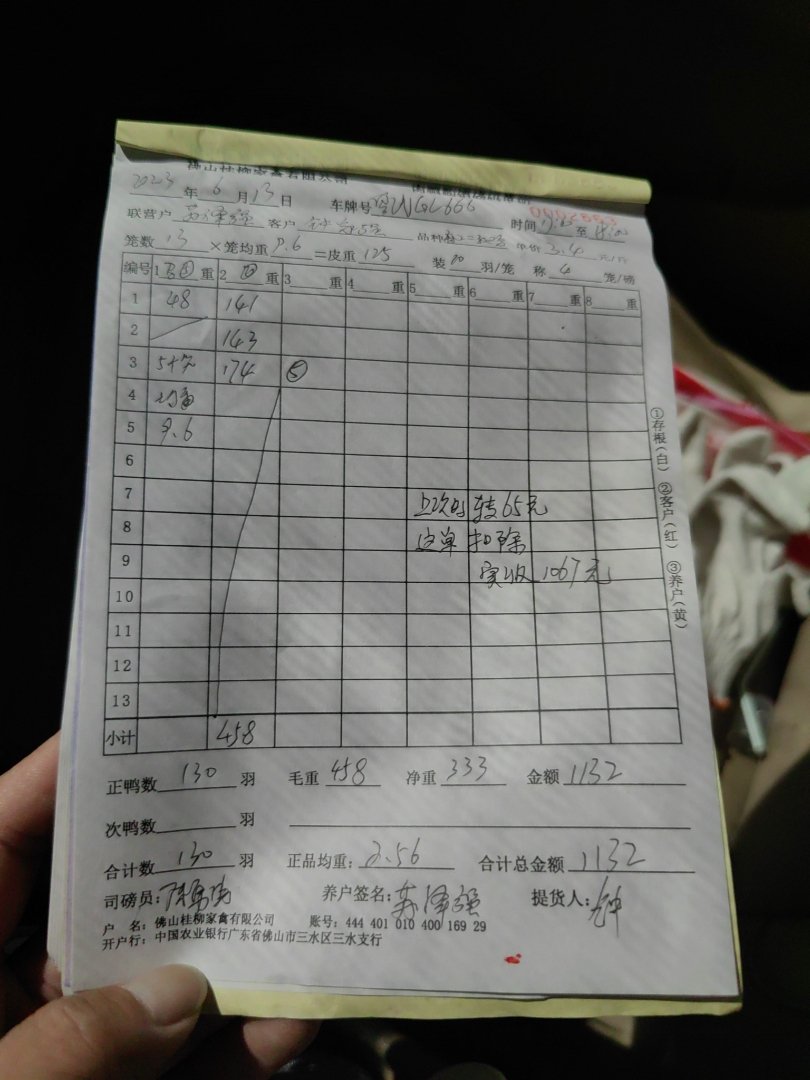 佛山桂柳家禽有限公司
2023 年 6 月 13 日 车牌号
0002553
联营户 苏泽强 客户 品种 单价 3.40 元/斤
时间 至
笼数 13 ×笼均重 9.6 =皮重 125 装 10 羽/笼 称 4 笼/磅
编号 1 重 2 重 3 重 4 重 5 重 6 重 7 重 8 重
1 48 141
2 143
3 5个 174 ⑤
4
5 9.6
6
7 上次多转65元
8 这单扣除
9 实收 1067元
10
11
12
13
小计 458
①存根(白) ②客户(红) ③养户(黄)
正鸭数 130 羽 毛重 458 净重 333 金额 1132
次鸭数 羽
合计数 130 羽 正品均重: 2.56 合计总金额 1132
司磅员: 养户签名: 苏泽强 提货人: 钟
户 名: 佛山桂柳家禽有限公司 账号: 444 401 010 400 169 29
开户行: 中国农业银行广东省佛山市三水区三水支行